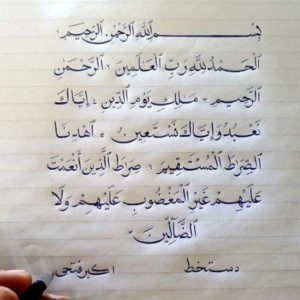 بِسْمِ اللَّهِ الرَّحْمَٰنِ الرَّحِيمِ ۱
الْحَمْدُ لِلَّهِ رَبِّ الْعَالَمِينَ ۲ الرَّحْمَٰنِ
الرَّحِيمِ ۳ مَٰلِكِ يَوْمِ الدِّينِ ۴ إِيَّاكَ
نَعْبُدُ وَإِيَّاكَ نَسْتَعِينُ ۵ اهْدِنَا
الصِّرَٰطَ الْمُسْتَقِيمَ ۶ صِرَٰطَ الَّذِينَ أَنْعَمْتَ
عَلَيْهِمْ غَيْرِ الْمَغْضُوبِ عَلَيْهِمْ وَلَا
الضَّالِّينَ ۷
دستخط اکبر فتحی